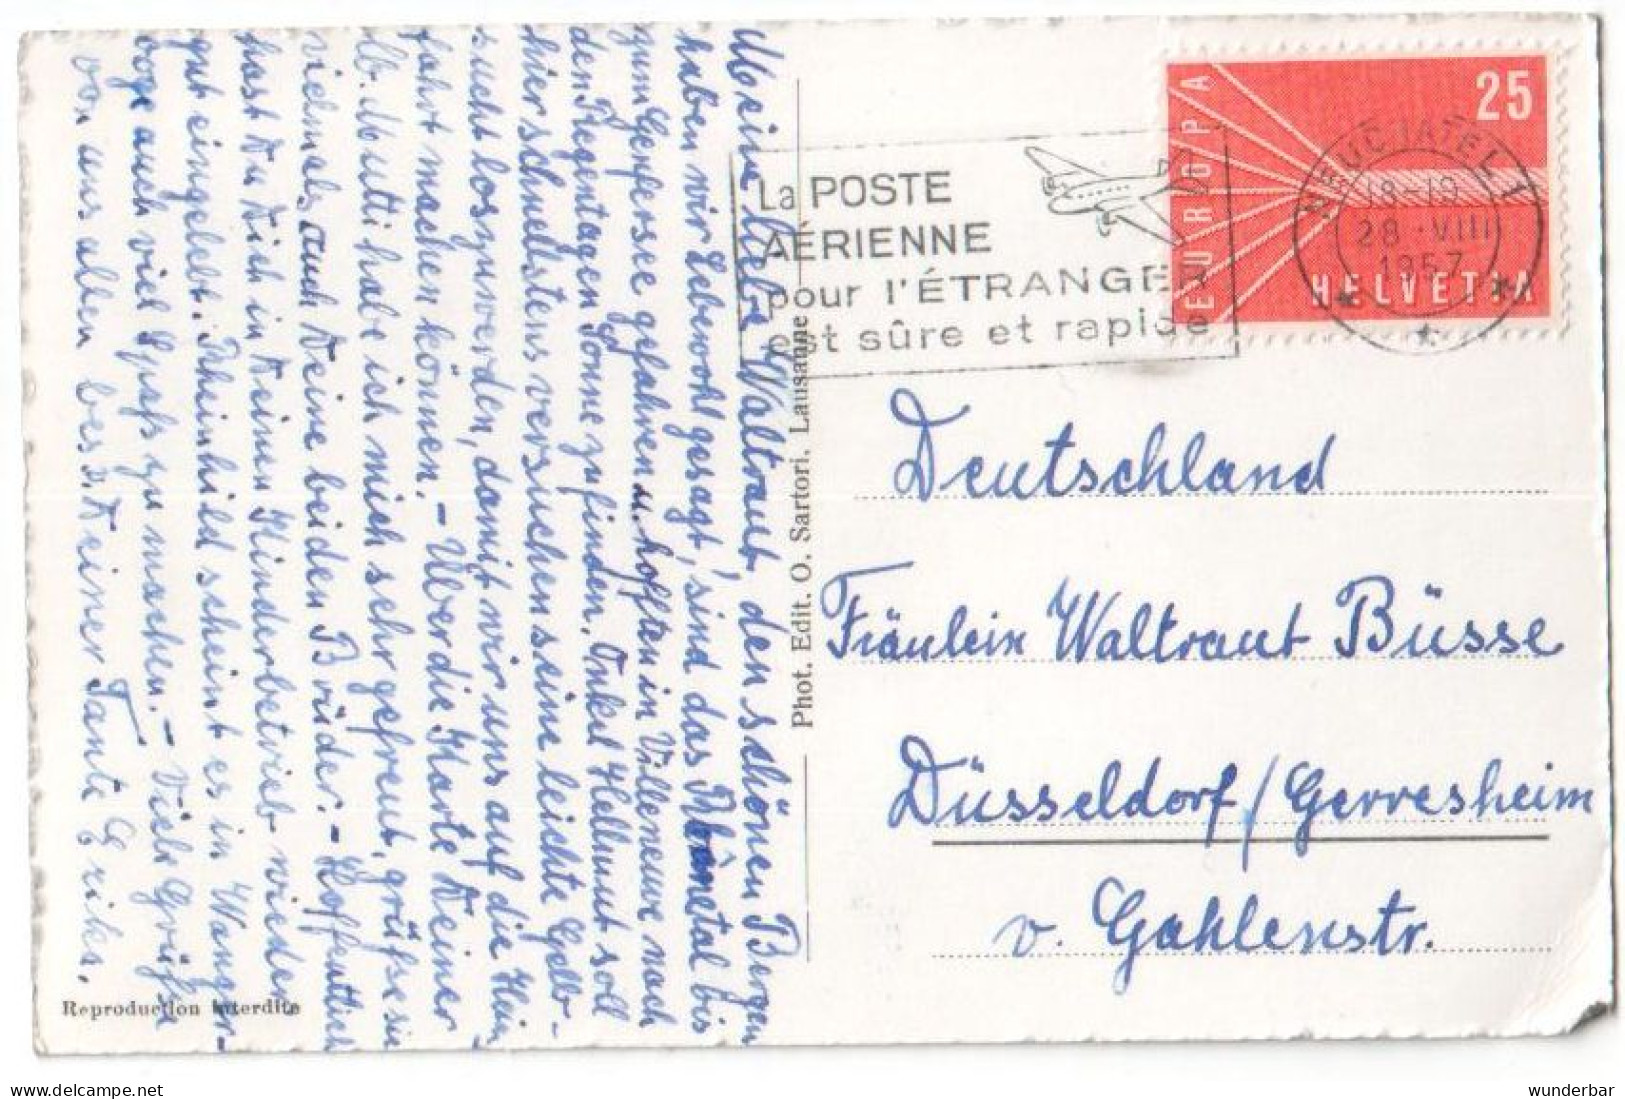 Meine liebe Waltraut, den schönen Bergen
haben wir Lebewohl gesagt, sind das Rhônetal bis
zum Genfersee gefahren u. hofften in Villeneuve nach
den Regentagen Sonne zu finden. Onkel Hellmut soll
hier schnellstens versuchen seine leichte Gelb-
sucht loszuwerden, damit wir uns auf die Heim
fahrt machen können. - Über die Karte Deiner
lb. Mutti habe ich mich sehr gefreut, grüsse sie
vielmals auch Deine beiden Brüder. - Hoffentlich
hast Du Dich in Deinen Kinderbetrieb wieder
gut eingelebt. Rheinhild scheint es in Wanger-
ooge auch viel Spass zu machen. - Viele Grüße
von uns allen bes. Deiner Tante Erika.
Reproduction interdite
Phot. Edit. O. Sartori, Lausanne
La POSTE
AÉRIENNE
pour l'ÉTRANGER
est sûre et rapide
EUROPA
25
HELVETIA
NEUCHATEL 1
18-19
28.VIII
1957
Deutschland
Fräulein Waltraut Büsse
Düsseldorf/Gerresheim
v. Gahlenstr.
www.delcampe.net
wunderbar